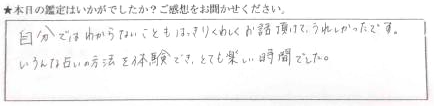 ★本日の鑑定はいかがでしたか？ご感想をお聞かせください。
自分ではわからないこともはっきりくわしくお話し頂けて、うれしかったです。
いろんな占いの方法を体験でき、とても楽しい時間でした。